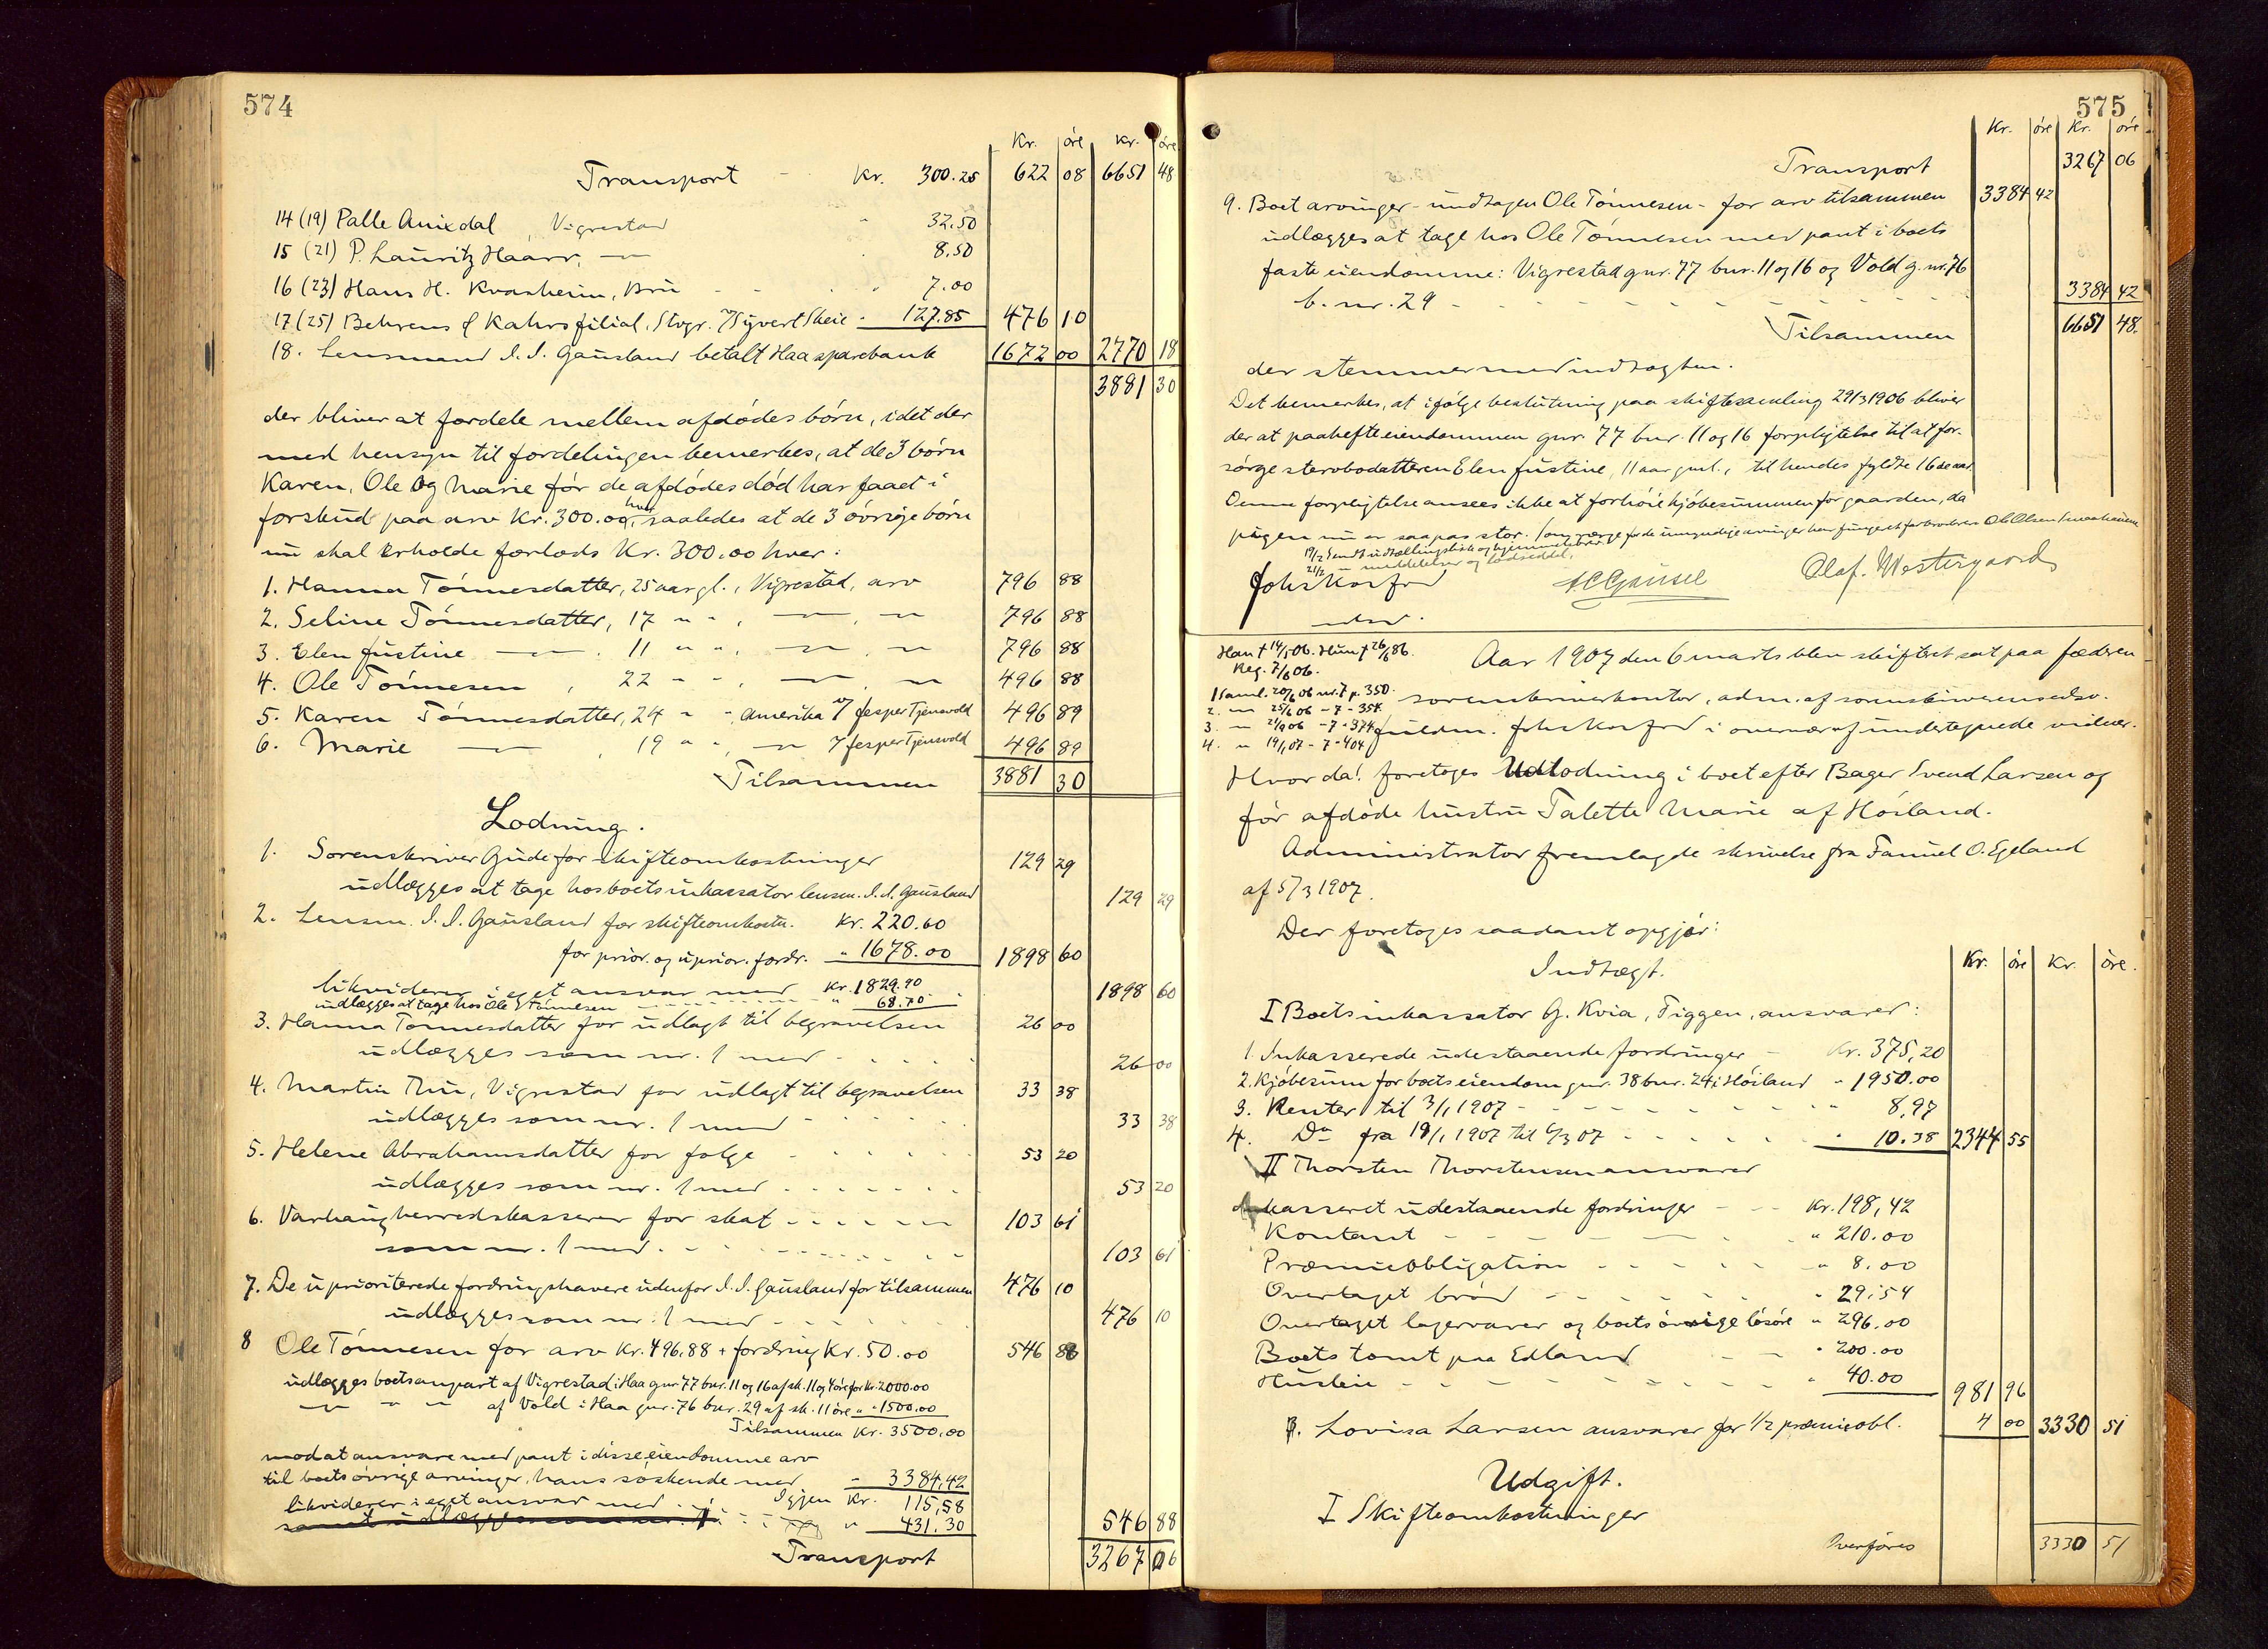 574
Kr. øre Kr. øre
Transport - Kr. 300.25 622 08 6651 48
14 (19) Palle Anixdal, Vigrestad " 32.50
15 (21) P. Lauritz Haarr, — 8.50
16 (23) Hans H. Kvalheim, Bru - - " 7.00
17 (25) Behrens & Kahrs filial, Stvgr. v/ Syvert Skeie - 127.85 476 10
18. Lensmand I. I. Gausland betalt Haa sparebank 1672 00 2770 18
3881 30
der bliver at fordele mellem afdødes børn, idet der
med hensyn til fordelingen bemerkes, at de 3 børn
Karen, Ole og Marie før de afdødes død har faaet i
forskud paa arv Kr. 300.00 hver, saaledes at de 3 øvrige børn
nu skal erholde forlods Kr. 300,00 hver:
1. Hanna Tønnesdatter, 25 aar gl., Vigrestad, arv 796 88
2. Seline Tønnesdatter, 17 " ", — , — 796 88
3. Elen Justine — , 11 " ", — , — 796 88
4. Ole Tønnesen , 22 - - , — , — 496 88
5. Karen Tønnesdatter, 24 " -, Amerika v/ Jesper Tjensvold 496 89
6. Marie — , 19 " ", — v/ Jesper Tjensvold 496 89
Tilsammen 3881 30
Lodning.
1. Sorenskriver Gude for skifteomkostninger 129 29
udlægges at tage hos boets inkassator lensm. I. I. Gausland 129 29
2. Lensm. I. I. Gausland for skifteomkostn. Kr. 220.60
for prior. og uprior. fordr. " 1678.00 1898 60
likviderer i eget ansvar med Kr. 1829.90 1898 60
udlægges at tage hos Ole Tønnesen - - - " 68.70
3. Hanna Tønnesdatter for udlagt til begravelsen 26 00
udlægges som nr. 1 med - - - 26 00
4. Martin Thu, Vigrestad for udlagt til begravelsen 33 38
udlægges som nr. 1 med - - - 33 38
5. Helene Abrahamsdatter for følge - - - 53 20
udlægges som nr. 1 med - - - 53 20
6. Varhaug herredskasserer for skat - - - 103 61
som nr. 1 med - - - 103 61
7. De uprioriterede fordringshavere udenfor I. I. Gausland for tilsammen 476 10
udlægges som nr. 1 med - - - 476 10
8 Ole Tønnesen for arv Kr. 496,88 + fordring Kr. 50.00 546 88
udlægges boets anpart af Vigrestad i Haa gnr. 77 bnr. 11 og 16 af sk. 11 og 4 øre for Kr. 2000.00
— " — af Vold i Haa gnr. 76 bnr. 29 af sk. 11 øre " " 1500.00
Tilsammen Kr. 3500,00
mod at ansvare med pant i disse eiendomme arv
til boets øvrige arvinger, hans søskende med - 3384,42
likviderer i eget ansvar med - - Igjen Kr. 115,58
samt udlægges som nr. 1 - - - " 431.30 546 88
Transport 3267 06
575
Kr. øre Kr. øre
Transport 3267 06
9. Boet arvinger - undtagen Ole Tønnesen - for arv tilsammen 3384 42
udlægges at tage hos Ole Tønnesen med pant i boets
faste eiendomme: Vigrestad gnr. 77 bnr. 11 og 16 og Vold g. nr. 76
b. nr. 29 - - - 3384 42
Tilsammen 6651 48.
der stemmer med indtægten.
Det bemerkes, at ifølge beslutning paa skiftesamling 29/3 1906 bliver
der at paahefte eiendommen gnr. 77 bnr. 11 og 16 forpligtelse til at for-
sørge stervbodatteren Elen Justine, 11 aar gml., til hendes fyldte 16de aar.
Denne forpligtelse ansees ikke at forhøie kjøbesummen for gaarden, da
pigen nu er saapas stor. Som verge for de umyndige arvinger har fungeret farbroderen Ole Olsen
19/2 Sendt udtællingsliste og hjemmelsbrev.
21/2 " meddelelser og lodseddel.
Joh's Korsfur
HCGausel
Olaf. Westergaard
Han † 14/5 06. Hun † 26/6 86.
Reg. 7/6 06.
1 Saml. 20/6 06 nr. 7 p. 350.
2. — 25/6 06 - 7 - 354
3. — 21/9 06 - 7 - 374
4. " 19/1 07 - 7 - 404
Aar 1907 den 6 marts blev skifteret sat paa Jæderen
sorenskriverkontor, adm. af sorenskriverens edsv.
fuldm. Johs Korsfur i overvær af undertegnede vidner.
Hvorda! foretoges Udlodning i boet efter Bager Svend Larsen og
før afdøde hustru Talette Marie af Høiland.
Administrator fremlagde skrivelse fra Samuel O. Egeland
af 5/3 1907.
Der foretoges saadant opgjør:
Indtægt. Kr. øre Kr. øre.
I Boets inkassator G. Kvia, Figgen, ansvarer:
1. Inkasserede udestaaende fordringer - Kr. 375,20
2. Kjøbesum for boets eiendom gnr. 38 bnr. 24 i Høiland " 1950.00
3. Renter til 3/1 1907 - - - " 8,97
4. Do fra 19/1 1907 til 6/3 07 - - - " 10.38 2344 55
II Thorsten Thorstensen ansvarer
Inkasseret udestaaende fordringer - - Kr. 198,42
Kontant - - - " 210.00
Præmieobligation - - - " 8.00
Overtaget brød - - - " 29.54
Overtaget lagervarer og boets øvrige løsøre " 296.00
Boets tomt paa Edland - - " 200.00
Husleie - - - " 40.00 981 96
3. Lovisa Larsen ansvarer for 1/2 præmieobl. 4 00 3330 51
Udgift.
I Skifteomkostninger
Overføres 3330 51